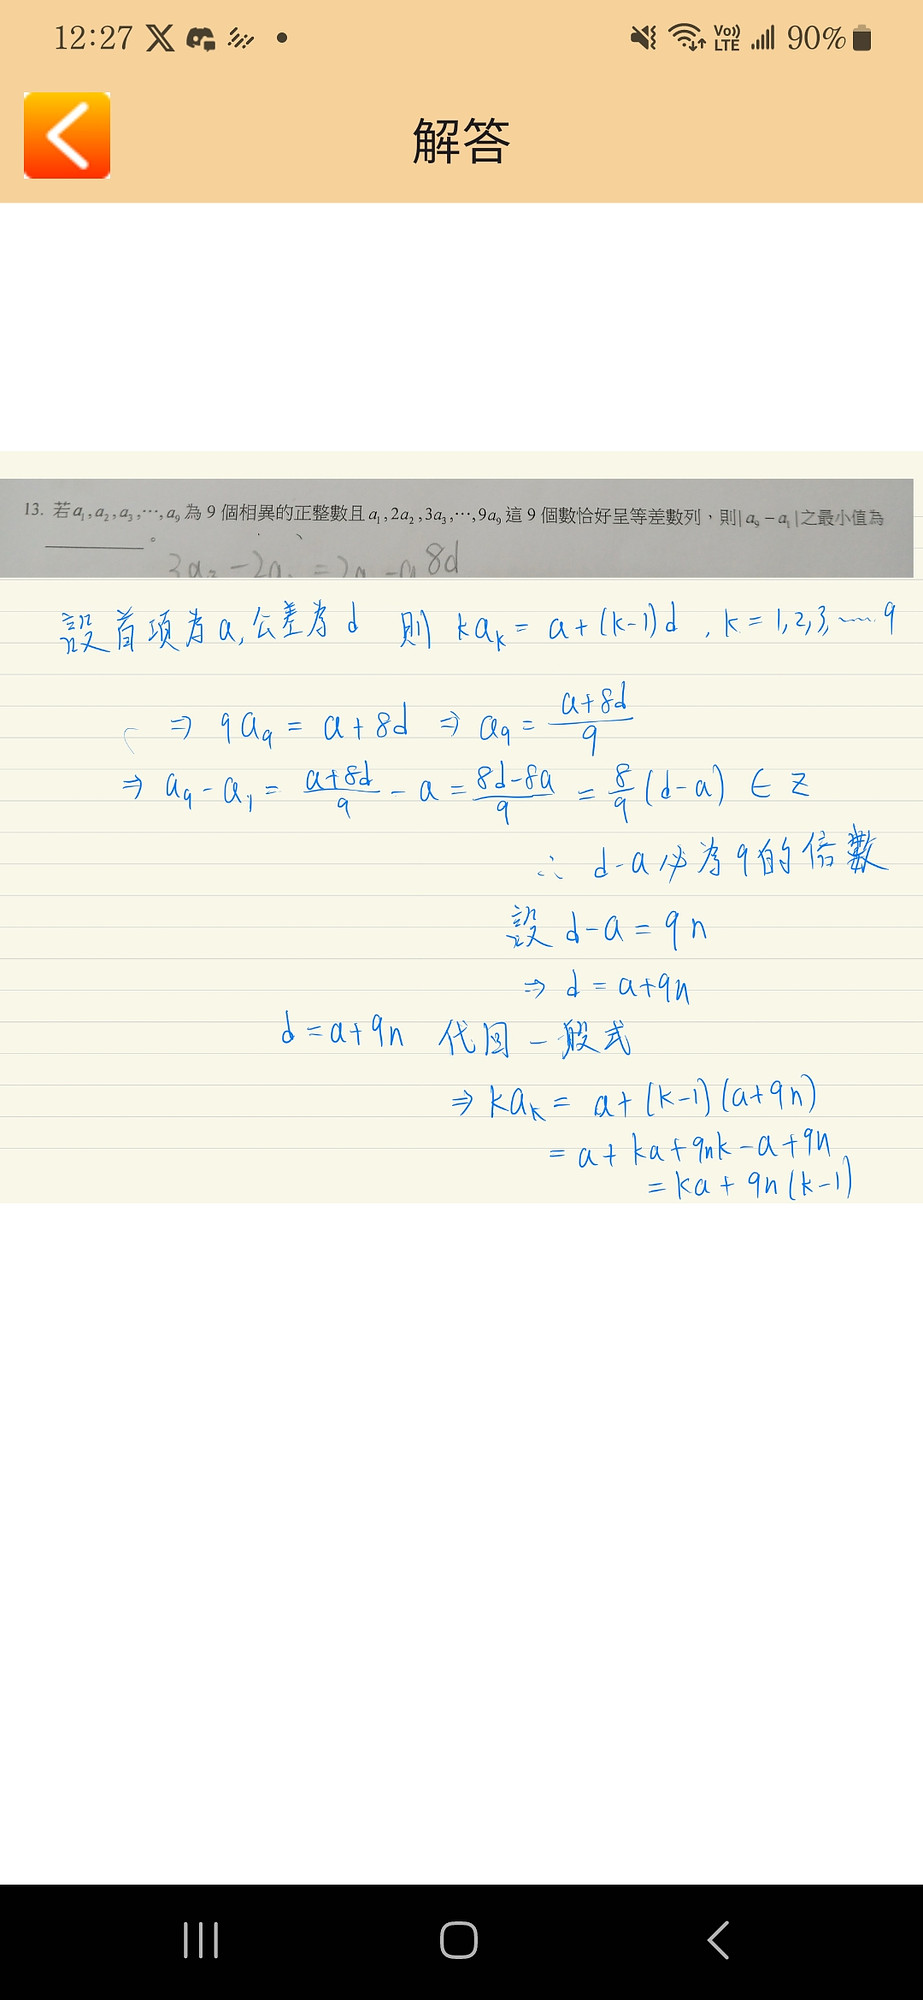 12:27
Vo)) LTE 90%
解答
13. 若a₁,a₂,a₃,⋯,a₉為 9 個相異的正整數且a₁,2a₂,3a₃,⋯,9a₉這 9 個數恰好呈等差數列，則|a₉−a₁|之最小值為
________。
8d
設首項為a,公差為d 則 kaₖ= a+(k-1)d , k=1,2,3,⋯⋯9
⇒ 9a₉= a+8d ⇒ a₉= (a+8d)/9
⇒ a₉-a₁= (a+8d)/9 - a = (8d-8a)/9 = 8/9 (d-a) ∈ Z
∴ d-a必為9的倍數
設 d-a=9n
⇒ d=a+9n
d=a+9n 代回一般式
⇒ kaₖ= a+(k-1)(a+9n)
= a+ka+9nk-a+9n
= ka+9n(k-1)